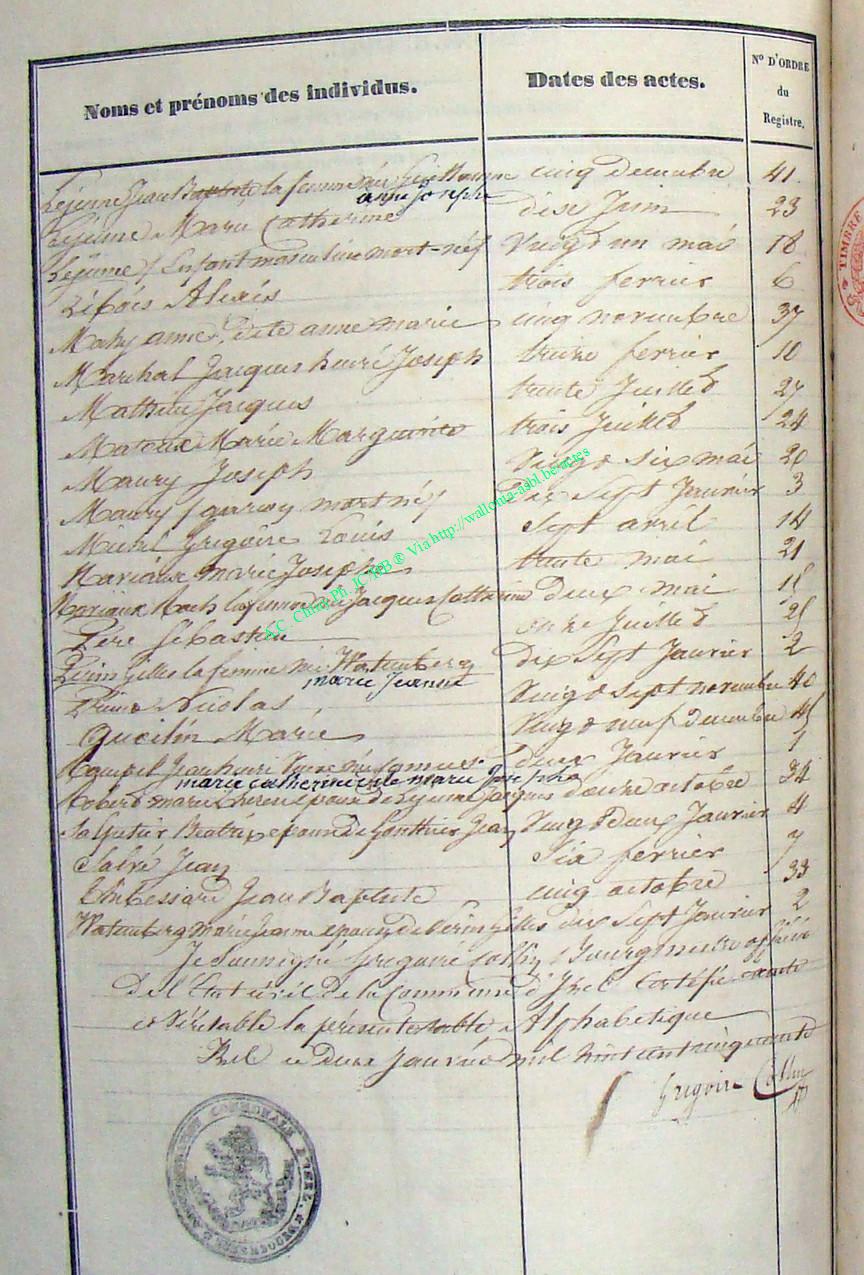 Noms et prénoms des individus. Dates des actes. N° D'ORDRE du Registre.
Lejeune Jean Baptiste la femme née Guillaume anne Joseph cinq decembre 41
Lejeune Marie Catherine dix Juin 23
Lejeune / Enfant masculin mort-né / Vingt un mai 18
Libois Alexis trois fevrier 6
Mahy anne, dite anne marie cinq novembre 37
Marchal Jacques henri Joseph treize fevrier 10
Mathieu Jacques trente Juillet 27
Marie Marguerite trois Juillet 24
Maury Joseph Vingt six mai 20
Maury / garcon mort né / Dix Sept Janvier 3
Michel Grégoire Louis Sept avril 14
Nariaux marie Joseph trente mai 21
Nariaux Roch la femme née Jacques Catherine deux mai 15
Pere Sébastien onze Juillet 25
Perin Gilles la femme née Watenberg marie Jeanne dix Sept Janvier 2
Nicolas Vingt Sept novembre 40
Quoilin Marie Vingt neuf decembre 45
Jean henri née marie catherine dite marie Josephe deux Janvier 1
Robert marie epouse de Lejeune Jacques douze octobre 34
Salpeteir Beatrix epouse de Gonthier Jean Vingt deux Janvier 4
Salvé Jean Six fevrier 7
Jean Baptiste cinq octobre 33
Watenberg marie Jeanne epouse de Perin Gilles dix Sept Janvier 2
Je Soussigné Gregoire Collin Bourgmestre officier
de l'Etat civil de la Commune d'Izel Certifie exacte
et Véritable la présente table Alphabetique
Izel ce deux Janvier mil huit cent cinquante
Grégoire Collin
A.C. Chiny Ph. JC RB ® Via http://wallonia-asbl.be/actes
TIMBRE
ADMINISTRATION COMMUNALE D'IZEL